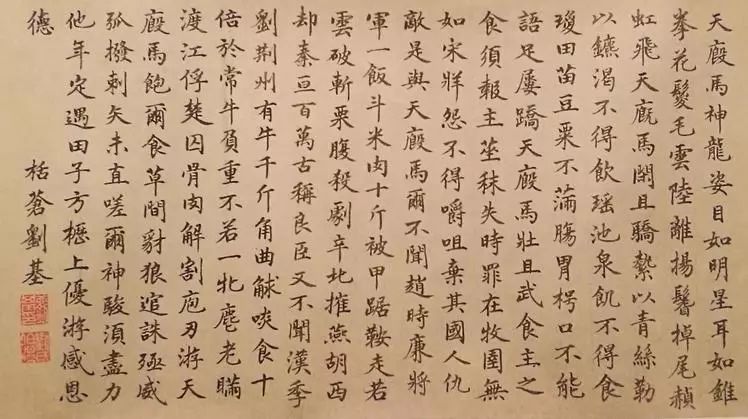 天廄馬神龍姿目如明星耳如錐
拳花鬉毛雲陸離揚鬐掉尾赬
虹飛天廄馬閑且驕縶以青絲勒
以鑣渴不得飲瑶池泉飢不得食
瓊田苗豆粟不滿腸胃楞口不能
語足屢蹻天廄馬壯且武食主之
食須報主莝秣失時罪在牧圉無
如宋牂怨不得嚼咀棄其國人仇
敵是與天廄馬爾不聞趙時廉將
軍一飯斗米肉十斤被甲踞鞍走若
雲破斬栗腹殺劇辛北摧燕胡西
却秦亘百萬古稱良臣又不聞漢季
劉荊州有牛千斤角曲觩啖食十
倍於常牛負重不若一牝麀老瞞
渡江俘楚囚骨肉解割庖刃游天
廄馬飽爾食草間豺狼逭誅殛威
弧撥剌矢未直嗟爾神駿須盡力
他年定遇田子方櫪上優游感恩
德
栝蒼劉基